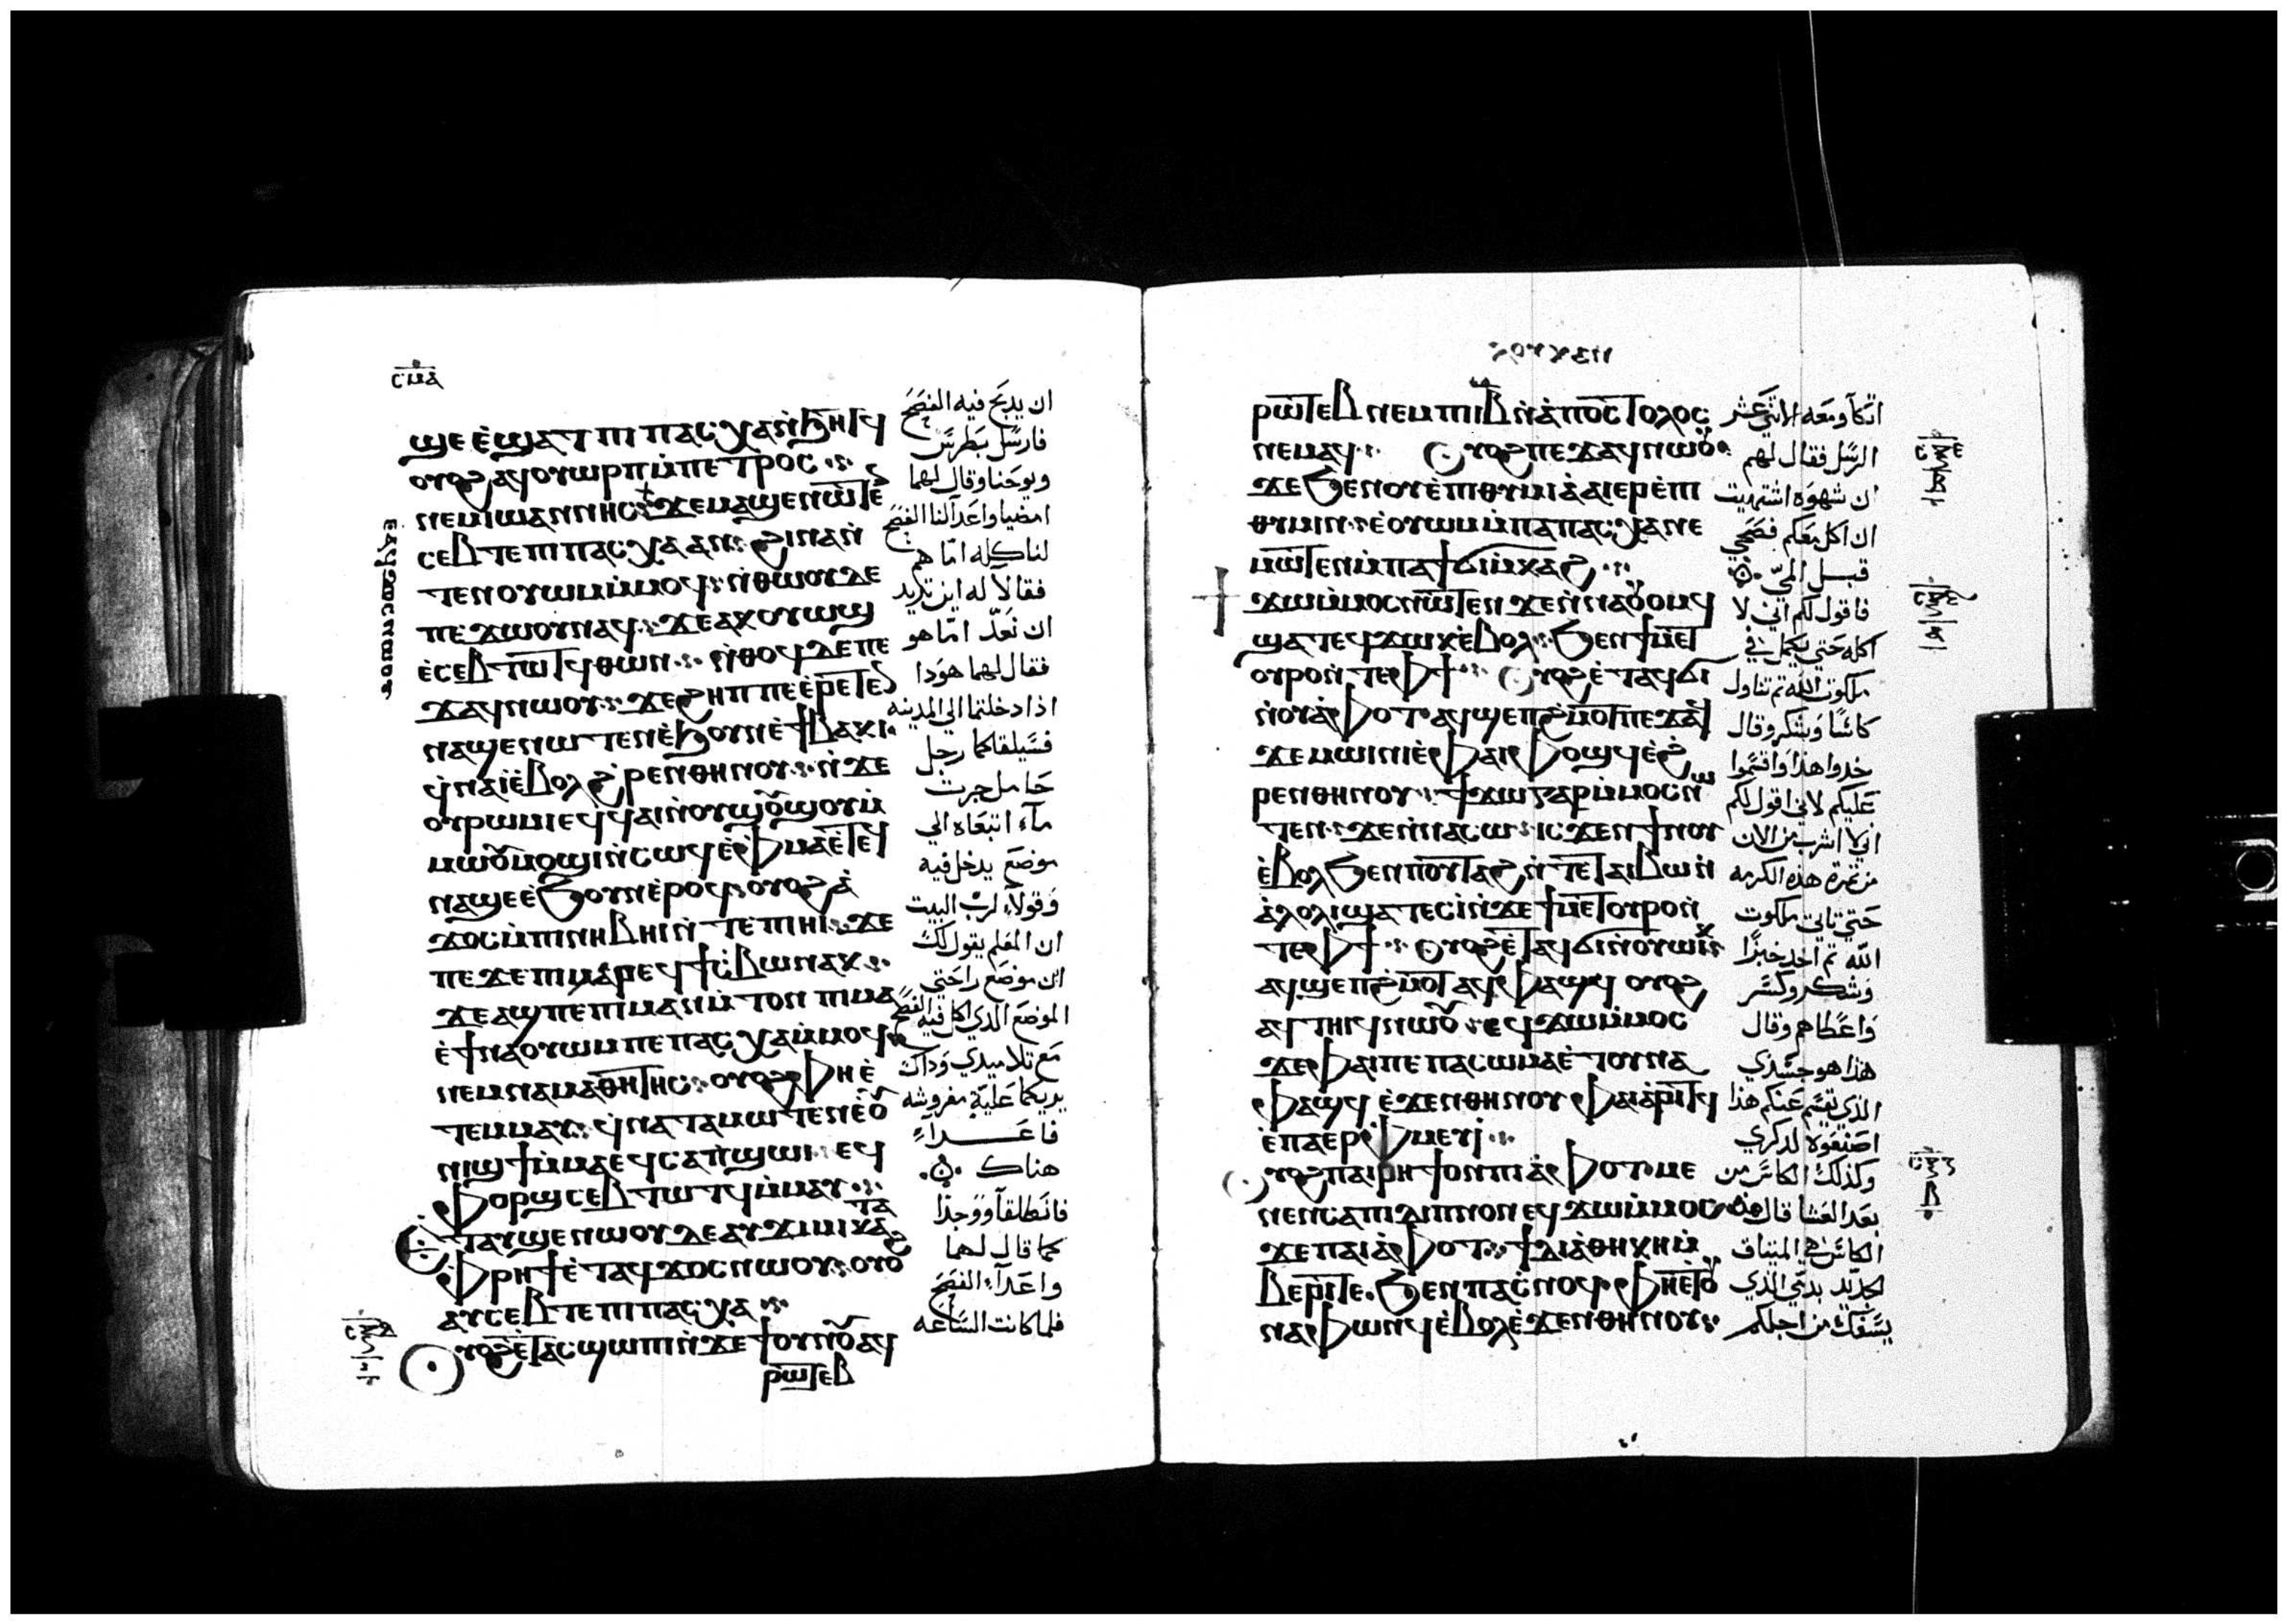 ⲥⲙⲁ
ϣⲉ ⲉ̀ϣⲁⲧ ⲡⲓⲡⲁⲥⲭⲁ ⲛ̀ϧⲏⲧϥ
ⲟⲩⲟϩ ⲁϥⲟⲩⲱⲣⲡ ⲙ̀ⲡⲉⲧⲣⲟⲥ
ⲛⲉⲙ ⲓⲱⲁⲛⲛⲏⲥ ϫⲉ ⲙⲁϣⲉⲛⲱⲧⲉ
ⲥⲉⲃⲧⲉ ⲡⲓⲡⲁⲥⲭⲁ ⲁⲛ ϩⲓⲛⲁ ⲛ̀
ⲧⲉⲛⲟⲩⲱⲙ ⲙ̀ⲙⲟϥ ⲛ̀ⲑⲱⲟⲩ ⲇⲉ
ⲡⲉϫⲱⲟⲩ ⲛⲁϥ ϫⲉ ⲁⲕⲟⲩⲱϣ
ⲉ̀ⲥⲉⲃⲧⲱⲧϥ ⲑⲱⲛ ⲛ̀ⲑⲟϥ ⲇⲉ ⲡⲉ
ϫⲁϥ ⲛⲱⲟⲩ ϫⲉ ϩⲏⲡⲡⲉ ⲉⲣⲉⲧⲉ
ⲛⲁϣⲉⲛⲱⲧⲉⲛ ⲉ̀ϧⲟⲩⲛ ⲉ̀ϯⲃⲁⲕⲓ
ϥ̀ⲛⲁⲓ̀ ⲉ̀ⲃⲟⲗ ϩ̀ⲣⲉⲛ ⲑⲏⲛⲟⲩ ⲛ̀ϫⲉ
ⲟⲩⲣⲱⲙⲓ ⲉϥϥⲁⲓ ⲛ̀ⲟⲩϣⲟϣⲟⲩ ⲙ̀
ⲙⲱⲟⲩ ⲙⲟϣⲓ ⲛ̀ⲥⲱϥ ⲉ̀ⲫⲙⲁ ⲉ̀ⲧⲉϥ
ⲛⲁϣⲉ ⲉ̀ϧⲟⲩⲛ ⲉ̀ⲣⲟϥ ⲟⲩⲟϩ ⲁ̀
ϫⲟⲥ ⲙ̀ⲡⲓⲛⲏⲃⲏⲓ ⲛ̀ⲧⲉ ⲡⲓⲏⲓ ϫⲉ
ⲡⲉϫⲉ ⲡⲓⲙⲁ ⲣⲉϥϯⲥ̀ⲃⲱ ⲛⲁⲕ
ϫⲉ ⲁϣ ⲡⲉ ⲡⲓⲙⲁ ⲛ̀ⲙ̀ⲧⲟⲛ ⲡⲓⲙⲁ
ⲉ̀ϯⲛⲁⲟⲩⲱⲙ ⲡⲉⲡⲁⲥⲭⲁ ⲙ̀ⲙⲟϥ
ⲛⲉⲙ ⲛⲁⲙⲁⲑⲏⲧⲏⲥ ⲟⲩⲟϩ ⲫⲏ ⲉ̀
ⲧⲉⲙⲙⲁⲩ ϥ̀ⲛⲁⲧⲁⲙⲱⲧⲉⲛ ⲉ̀ⲟⲩ
ⲛⲓϣϯ ⲙ̀ⲙⲁ ⲉϥⲥⲁⲡϣⲱⲓ ⲉϥ
ⲫⲟⲣϣ ⲥⲉⲃⲧⲱⲧϥ ⲙ̀ⲙⲁⲩ
ⲉⲧⲁⲩϣⲉⲛⲱⲟⲩ ⲇⲉ ⲁⲩϫⲓⲙⲓ ⲕⲁⲧⲁ
ⲫⲣⲏϯ ⲉ̀ⲧⲁϥϫⲟⲥ ⲛⲱⲟⲩ ⲟⲩⲟϩ
ⲁⲩⲥⲉⲃⲧⲉ ⲡⲓⲡⲁⲥⲭⲁ
ⲟⲩⲟϩ ⲉ̀ⲧⲁⲥϣⲱⲡⲓ ⲛ̀ϫⲉ ϯⲟⲩⲛⲟⲩ ⲁϥ
ⲣⲱⲧⲉⲃ
ⲉⲁϥϫⲟⲥ ⲛⲱⲟⲩ
ان يدبح فيه الفصح
فارسل بطرس
ويوحنا وقال لهما
امضيا واعدا لنا الفصح
لناكله اما هم
فقالا له اين تريد
ان نعد اما هو
فقال لهما هودا
اذا دخلتما الي المدينه
فسيلقاكما رجل
حامل جرت
مآء اتبعاه الي
موضع يدخل فيه
وقولا لرب البيت
ان المعلم يقول لك
اين موضع راحتي
الموضع الدي اكل فيه الفصح
مع تلاميدي وداك
يريكما علية مفروشه
فاعدا
هناك
فانطلقا ووجدا
كما قال لهما
واعدا الفصح
فلما كانت الساعه
ⲣⲱⲧⲉⲃ ⲛⲉⲙ ⲡⲓⲓⲃ ⲛ̀ⲁ̀ⲡⲟⲥⲧⲟⲗⲟⲥ
ⲛⲉⲙⲁϥ ⲟⲩⲟϩ ⲡⲉϫⲁϥ ⲛⲱⲟⲩ
ϫⲉ ϧⲉⲛ ⲟⲩⲉ̀ⲡⲓⲑⲩⲙⲓⲁ̀ ⲁⲓⲉⲣⲉ̀ⲡⲓ
ⲑⲩⲙⲓⲛ ⲉ̀ⲟⲩⲱⲙ ⲙ̀ⲡⲁⲡⲁⲥⲭⲁ ⲛⲉ
ⲙⲱⲧⲉⲛ ⲙ̀ⲡⲁϯϭⲓⲙ̀ⲕⲁϩ
ϫⲱ ⲙ̀ⲙⲟⲥ ⲛⲱⲧⲉⲛ ϫⲉ ⲛ̀ⲛⲁⲟⲩⲟⲙϥ
ϣⲁⲧⲉϥϫⲱⲕ ⲉ̀ⲃⲟⲗ ϧⲉⲛ ϯⲙⲉⲧ
ⲟⲩⲣⲟ ⲛ̀ⲧⲉ ⲫϯ ⲟⲩⲟϩ ⲉ̀ⲧⲁϥϭⲓ
ⲛ̀ⲟⲩⲁ̀ⲫⲟⲧ ⲁϥϣⲉⲡϩ̀ⲙⲟⲧ ⲡⲉϫⲁϥ
ϫⲉ ⲙⲱⲓⲛⲓ ⲉ̀ⲫⲁⲓ ⲫⲟϣϥ ⲉ̀ϩ̀
ⲣⲉⲛ ⲑⲏⲛⲟⲩ ϯϫⲱ ⲅⲁⲣ ⲙ̀ⲙⲟⲥ ⲛⲱ
ⲧⲉⲛ ϫⲉ ⲛ̀ⲛⲁⲥⲱ ⲓⲥϫⲉⲛ ϯⲛⲟⲩ
ⲉ̀ⲃⲟⲗ ϧⲉⲛ ⲡⲟⲩⲧⲁϩ ⲛ̀ⲧⲉ ⲧⲁⲓⲃⲱ ⲛ̀
ⲁ̀ⲗⲟⲗⲓ ϣⲁⲧⲉⲥⲓ̀ ⲛ̀ϫⲉ ϯⲙⲉⲧⲟⲩⲣⲟ ⲛ̀
ⲧⲉ ⲫϯ ⲟⲩⲟϩ ⲉ̀ⲧⲁϥϭⲓ ⲛ̀ⲟⲩⲱⲓⲕ
ⲁϥϣⲉⲡϩ̀ⲙⲟⲧ ⲁϥⲫⲁϣϥ ⲟⲩⲟϩ
ⲁϥⲧⲏⲓϥ ⲛⲱⲟⲩ ⲉϥϫⲱ ⲙ̀ⲙⲟⲥ
ϫⲉ ⲫⲁⲓ ⲡⲉ ⲡⲁⲥⲱⲙⲁ ⲉ̀ⲧⲟⲩⲛⲁ
ⲫⲁϣϥ ⲉ̀ϫⲉⲛ ⲑⲏⲛⲟⲩ ⲫⲁⲓ ⲁ̀ⲣⲓⲧϥ
ⲉ̀ⲡⲁⲉⲣⲫⲙⲉⲩⲓ
ⲟⲩⲟϩ ⲡⲁⲓⲣⲏϯ ⲟⲛ ⲡⲓⲁ̀ⲫⲟⲧ ⲙⲉ
ⲛⲉⲛⲥⲁ ⲡⲓⲇⲓⲡⲛⲟⲛ ⲉϥϫⲱ ⲙ̀ⲙⲟⲥ
ϫⲉ ⲡⲁⲓⲁ̀ⲫⲟⲧ ϯⲇⲓⲁ̀ⲑⲏⲕⲏ ⲙ̀
ⲃⲉⲣⲓ ⲧⲉ ϧⲉⲛ ⲡⲁⲥ̀ⲛⲟϥ ⲫⲏ ⲉ̀ⲧⲟⲩ
ⲛⲁⲫⲱⲛϥ ⲉ̀ⲃⲟⲗ ⲉ̀ϫⲉⲛ ⲑⲏⲛⲟⲩ
اتكا ومعه الاتني عشر
الرسل فقال لهم
ان شهوه اشتهيت
ان اكل معكم فصحي
قبل المي
فاقول لكم اني لا
اكله حتي يكمل في
ملكوت الله تم تناول
كاسا وشكر وقال
خدوا هدا واقتسموا
عليكم لاني اقول لكم
اني لا اشرب من الان
من تمرة هذه الكرمه
حتي تاتي ملكوت
الله تم اخد خبزا
وشكر وكسر
واعطاهم وقال
هذا هو جسدي
الذي يقسم عنكم هذا
اصنعوه لدكري
وكذلك الكاس من
بعد العشا قال هذه
الكاس هي الميتاق
الجديد بدمي الذي
يسفك من اجلكم